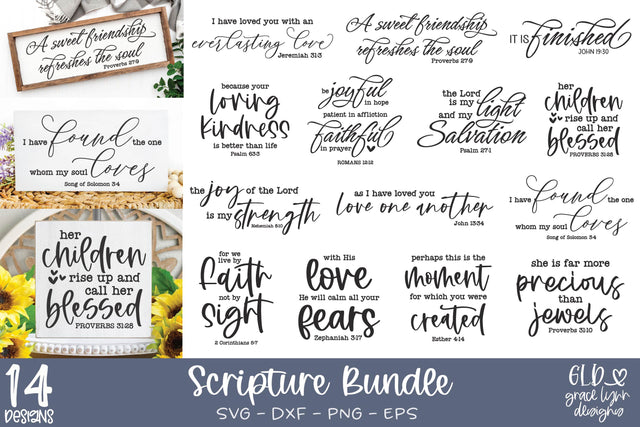 A sweet friendship
refreshes the soul
Proverbs 27:9
I have found the one
whom my soul loves
Song of Solomon 3:4
her
children
rise up and
call her
blessed
PROVERBS 31:28
I have loved you with an
everlasting love
Jeremiah 31:3
A sweet friendship
refreshes the soul
Proverbs 27:9
IT IS finished
JOHN 19:30
because your
loving
kindness
is better than life
Psalm 63:3
be joyful
in hope
patient in affliction
faithful
in prayer
ROMANS 12:12
the Lord
is my light
and my
Salvation
Psalm 27:1
her
children
rise up and
call her
blessed
PROVERBS 31:28
the joy of the Lord
is my strength
Nehemiah 8:10
as I have loved you
love one another
John 13:34
I have found the one
whom my soul loves
Song of Solomon 3:4
for we
live by
faith
not by
sight
2 Corinthians 5:7
with His
love
He will calm all your
fears
Zephaniah 3:17
perhaps this is the
moment
for which you were
created
Esther 4:14
she is far more
precious
than
jewels
Proverbs 31:10
14
DESIGNS
Scripture Bundle
SVG - DXF - PNG - EPS
GLD
grace lynn
designs